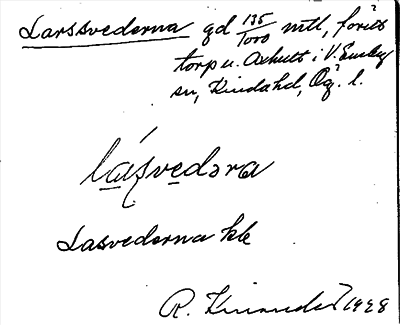 Larssvederna gd 135/1000 mtl, förut
torp u. Axhult i V. Eneby
sn, Kinda hd, Ög. l.
lásvedəra
Lasvederna kk
R. 1928